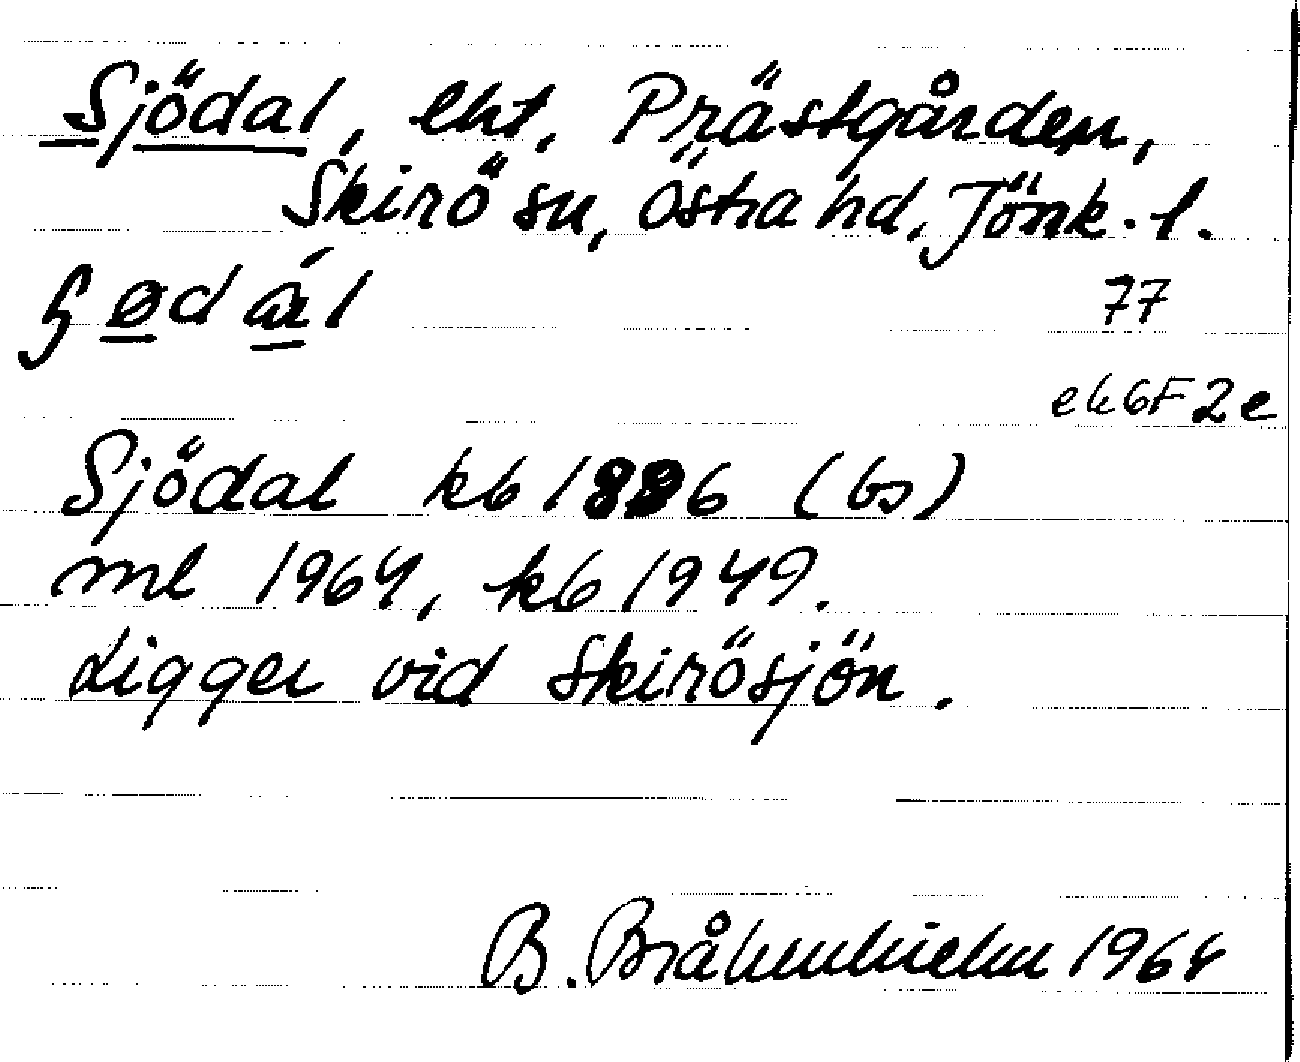 Sjödal, lht, Prästgården,
Skirö sn, Östra hd, Jönk. l.
77
ek 6F2e
Sjödal kb 1886 (bs)
ml 1964, kb 1949.
Ligger vid Skirösjön.
B. Bråkenhielm 1964